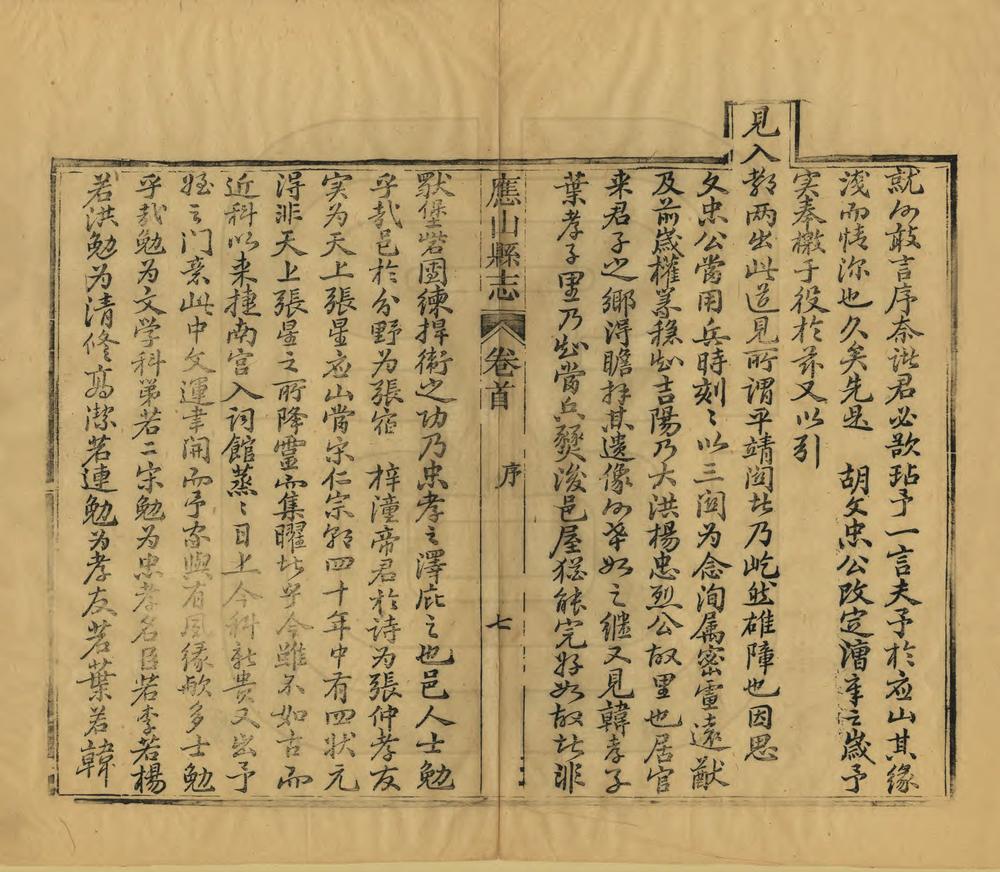 就何敢言序奈諧君必欲玷予一言夫予於应山其缘
浅而情深也久矣先是　胡文忠公改定漕章之歲予
实奉檄于役於茲又以引
見入
都两出此道見所謂平靖関此乃屹然雄障也因思
文忠公當用兵時刻〻以三関为念洵属密慮遠猷
及前歲權篆穏知吉陽乃大洪楊忠烈公故里也居官
来君子之鄉得瞻拜其遗像何幸如之继又見韓孝子
葉孝子里乃知當兵燹後邑屋猶能完好如故此非
應山縣志
卷首
序
七
獸堡砦团練捍衛之功乃忠孝之澤庇之也邑人士勉
乎哉邑於分野为張宿　梓潼帝君於诗为張仲孝友
实为天上張星应山當宋仁宗朝四十年中有四状元
得非天上張星之所降靈而集曜此乎今雖不如古而
近科以来捷南宫入词館蒸〻日上今科新贵又出予
姪之门意此中文運聿開而予家與有夙缘欤多士勉
乎哉勉为文学科第若二宋勉为忠孝名臣若李若楊
若洪勉为清修高潔若連勉为孝友若葉若韓